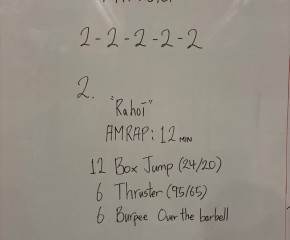 2-2-2-2-2
2.
"Rahoi"
AMRAP: 12 MIN
12 Box Jump (24/20)
6 Thruster (95/65)
6 Burpee Over the barbell